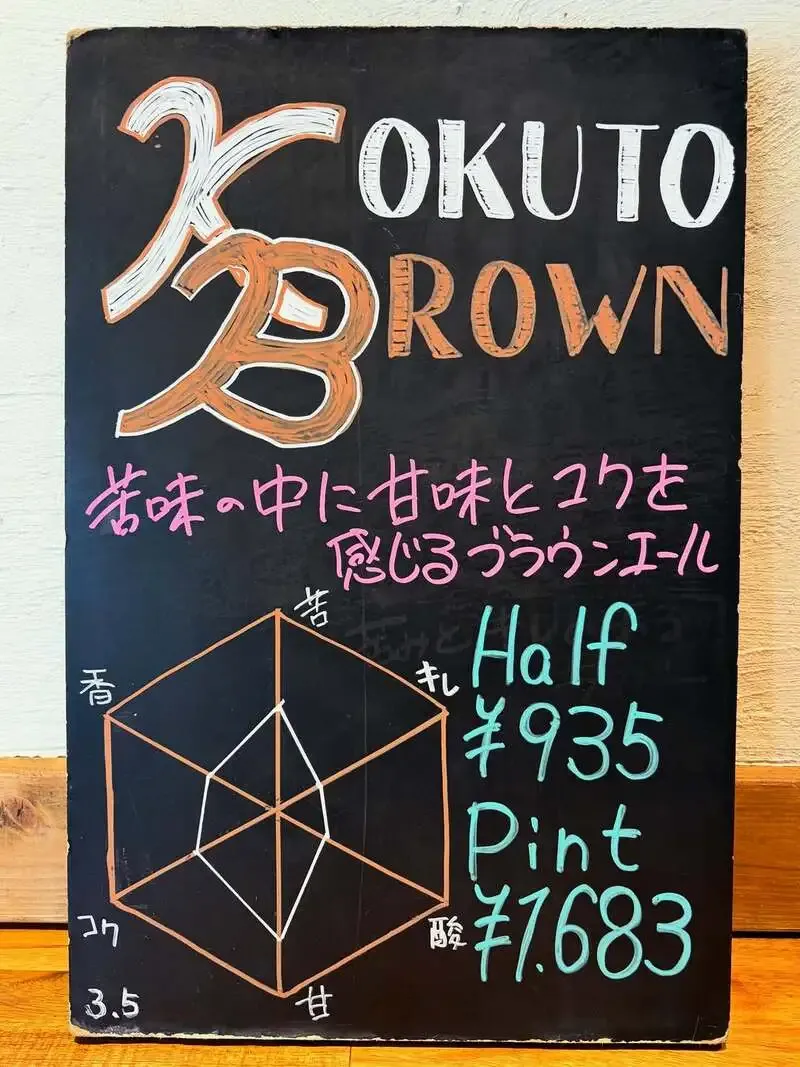 KOKUTO
BROWN
苦味の中に甘味とコクを
感じるブラウンエール
苦
香
キレ
コク
酸
甘
3.5
Half
¥935
Pint
¥1.683